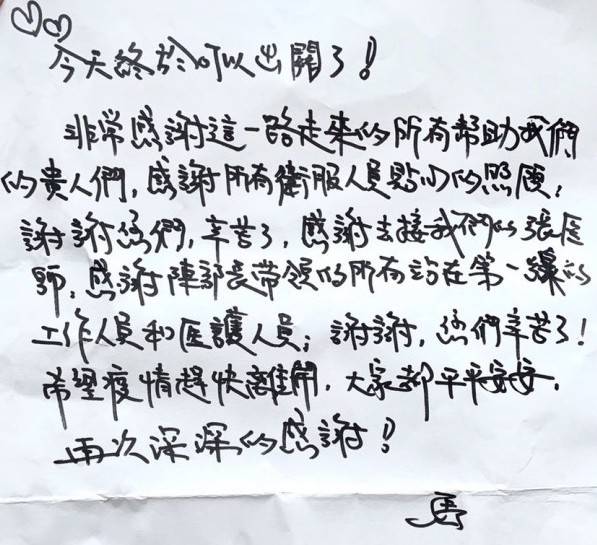 今天終於可以出關了!
非常感謝這一路走來的所有幫助我們
的貴人們,感謝所有衛服人員貼心的照顧,
謝謝您們,辛苦了,感謝去接我們的張医
師,感謝陳部長帶領的所有站在第一線的
工作人員和医護人員;謝謝,您們辛苦了!
希望疫情趕快離開,大家都平平安安.
再次深深的感謝!
馬